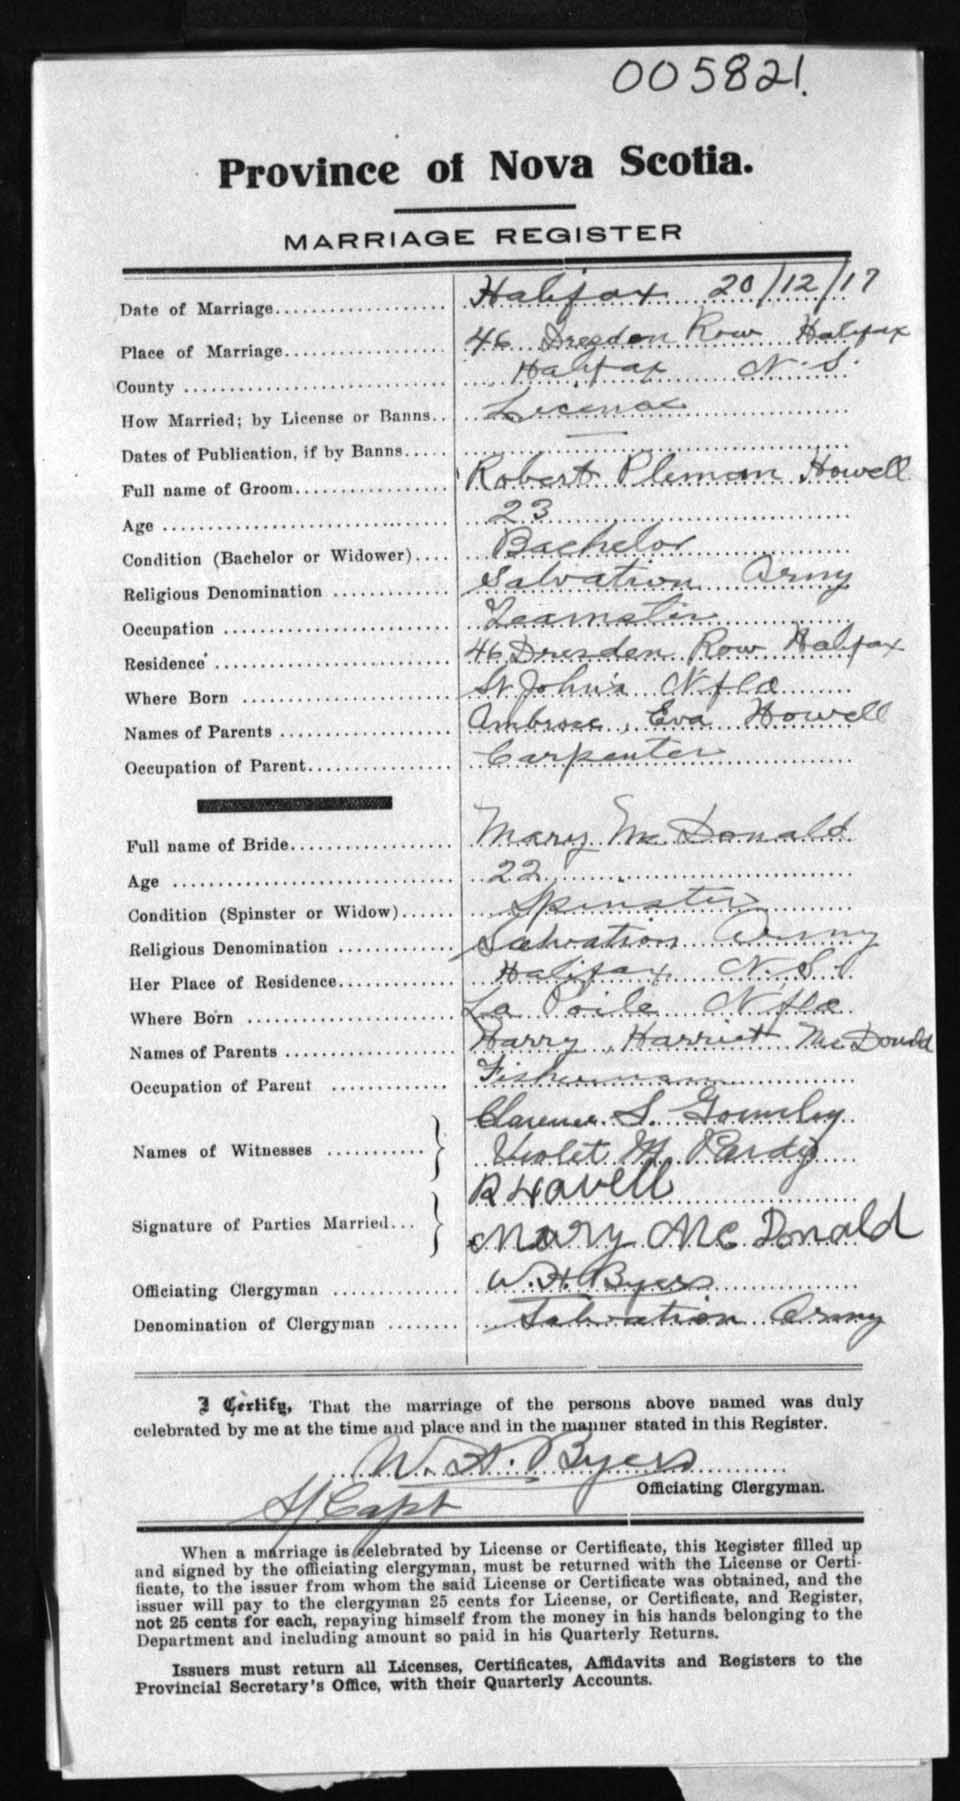 005821.
Province of Nova Scotia.
MARRIAGE REGISTER
Date of Marriage.................... Halifax 20/12/17
Place of Marriage................... 46 Dresden Row Halifax
County .............................. Halifax N.S.
How Married; by License or Banns.. License
Dates of Publication, if by Banns..... —
Full name of Groom.................. Robert Pleman Howell
Age ................................. 23
Condition (Bachelor or Widower).... Bachelor
Religious Denomination ............. Salvation Army
Occupation ......................... Teamster
Residence .......................... 46 Dresden Row Halifax
Where Born ........................ St John's Nfld
Names of Parents .................... Ambrose, Eva Howell
Occupation of Parent................. Carpenter
Full name of Bride.................. Mary McDonald
Age ................................. 22
Condition (Spinster or Widow)...... Spinster
Religious Denomination ............ Salvation Army
Her Place of Residence............. Halifax N.S.
Where Born ........................ La Poile Nfld
Names of Parents .................. Harry, Harriet McDonald
Occupation of Parent ............. Fisherman
Clarence S.
Names of Witnesses ........... Violet M Pardy
R Howell
Signature of Parties Married... Mary McDonald
Officiating Clergyman .............. W. H. Byers
Denomination of Clergyman ........ Salvation Army
I Certify, That the marriage of the persons above named was duly
celebrated by me at the time and place and in the manner stated in this Register.
W. H. Byers
Officiating Clergyman.
S/Capt
When a marriage is celebrated by License or Certificate, this Register filled up
and signed by the officiating clergyman, must be returned with the License or Certi-
ficate, to the issuer from whom the said License or Certificate was obtained, and the
issuer will pay to the clergyman 25 cents for License, or Certificate, and Register,
not 25 cents for each, repaying himself from the money in his hands belonging to the
Department and including amount so paid in his Quarterly Returns.
Issuers must return all Licenses, Certificates, Affidavits and Registers to the
Provincial Secretary's Office, with their Quarterly Accounts.